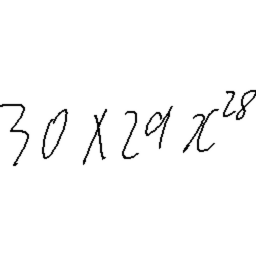 30 × 29 x^28